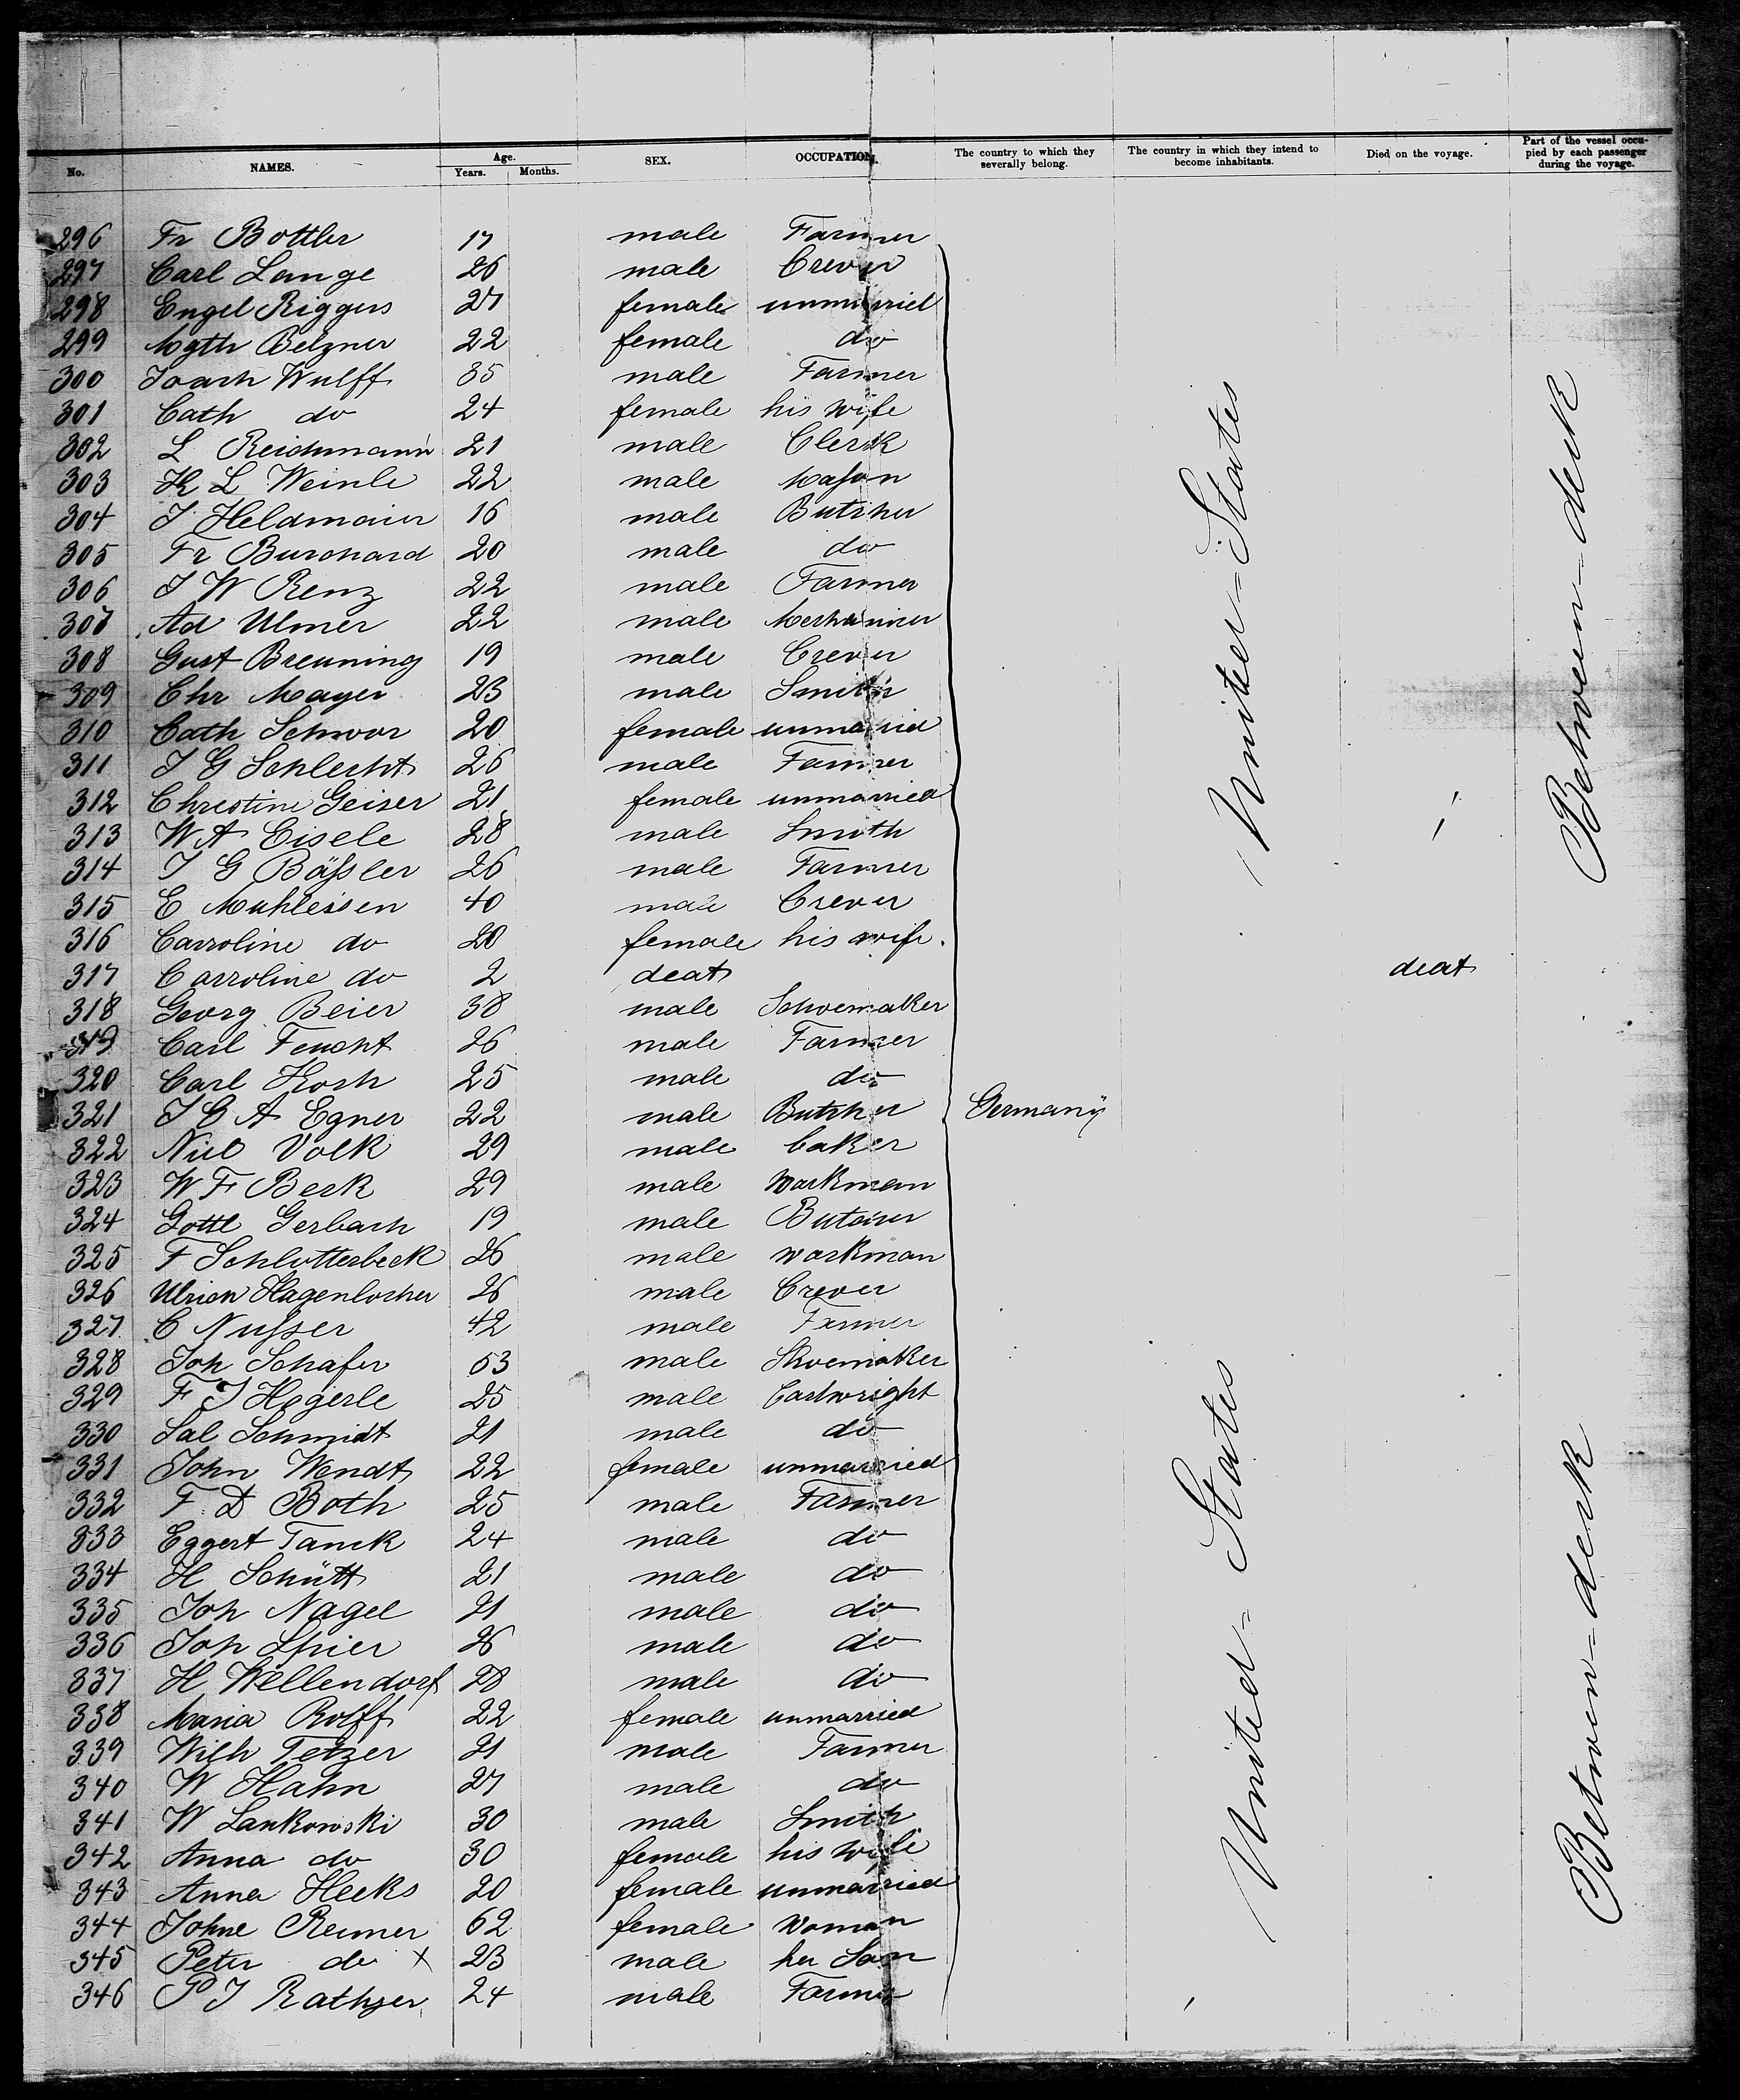 No. NAMES. Age. Years. Months. SEX. OCCUPATION. The country to which they severally belong. The country in which they intend to become inhabitants. Died on the voyage. Part of the vessel occupied by each passenger during the voyage.
296 Fr Bottler 17 male Farmer
297 Carl Lange 26 male Crever
298 Engel Riggers 27 female unmarried
299 Mgth Belzner 22 female do
300 Joach Wulff 35 male Farmer
301 Cath do 24 female his wife
302 L Reichmann 21 male Clerk
303 K L Weinle 22 male Mason
304 J Heldmaier 16 male Butcher
305 Fr Burchard 20 male do
306 J W Renz 22 male Farmer
307 Ad Ulmer 22 male
308 Gust Breuning 19 male Crever
309 Chr Mayer 23 male Smith
310 Cath Schwor 20 female unmarried
311 J G Schlecht 26 male Farmer
312 Christine Geiser 21 female unmarried
313 W A Eisele 28 male Smith
314 J G Bäßler 26 male Farmer
315 E Muhleisen 40 male Crever
316 Carroline do 20 female his wife.
317 Carroline do 2 deat deat
318 Georg Beier 38 male Schoemaker
319 Carl Feucht 26 male Farmer
320 Carl Koch 25 male do
321 J G A Egner 22 male Butcher Germany
322 Nic Volk 29 male baker
323 W F Beck 29 male workman
324 Gottl Gerbach 19 male Butcher
325 F Schlotterbeck 26 male workman
326 Ulrich Hagenlocher 26 male Crever
327 C Nußer 42 male Farmer
328 Joh Schafer 53 male Shoemaker
329 F J Hegerle 25 male Cartwright
330 Sal Schmidt 21 male do
331 John Wendt 22 female unmarried
332 F D Both 25 male Farmer
333 Eggert Tanck 24 male do
334 H Schütt 21 male do
335 Joh Nagel 21 male do
336 Joh Spier 26 male do
337 H Wellendorf 28 male do
338 Maria Rolff 22 female unmarried
339 Wilh Tetzer 21 male Farmer
340 W Hahn 27 male do
341 W Lankowski 30 male Smith
342 Anna do 30 female his wife
343 Anna Heeks 20 female unmarried
344 Johne Reimer 62 female woman
345 Peter do x 23 male her Son
346 P J Rathjer 24 male Farmer
United=States
Between=deck
United=States
Between=deck